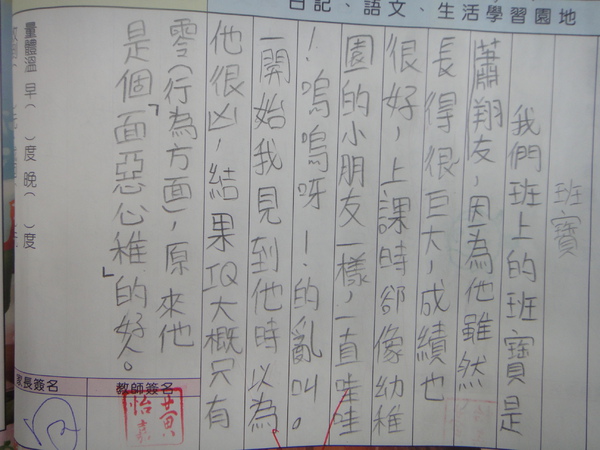 日記、語文、生活學習園地
班寶
我們班上的班寶是
蕭翔友，因為他雖然
長得很巨大，成績也
很好，上課時卻像幼稚
園的小朋友一樣，一直哇哇
！嗚嗚呀！的亂叫。
一開始我見到他時以為
他很凶，結果IQ大概只有
零（行為方面），原來他
是個「面惡心稚」的好人。
量體溫 早（ ）度 晚（ ）度
教師簽名
家長簽名
黃怡